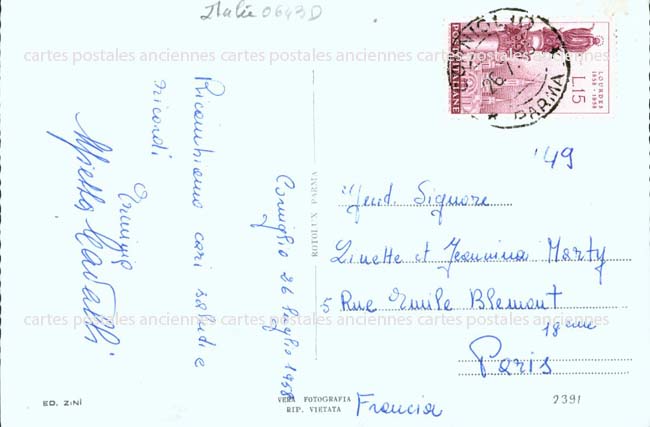 Italie 0643D
cartes postales anciennes cartes postales anciennes cartes postales anciennes
Corniglio 26 luglio 1958
Ricambiamo cari saluti e
ricordi
Cavalli
ROTOLUX PARMA
POSTE ITALIANE
LOURDES
1858-1958
L.15
CORNIGLIO
26.7.
PARMA
'49
Gent. Signore
Linette et Jeannina Marty
5 Rue Emile Blemont
18eme
Paris
Francia
cartes postales anciennes cartes postales anciennes cartes postales anciennes
ED. ZINÍ
VERA FOTOGRAFIA
RIP. VIETATA
2391